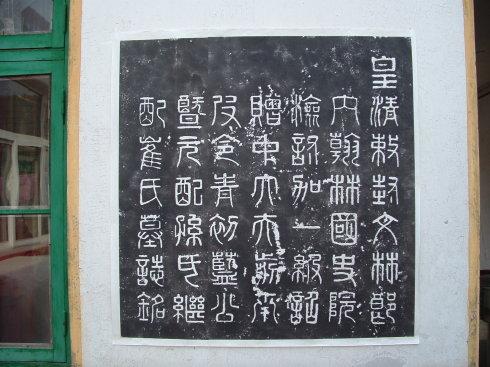 皇清敕封文林郎
內翰林國史院
檢討加一級誥
贈中大夫前南
皮令青初藍公
暨元配孫氏繼
配崔氏墓誌銘